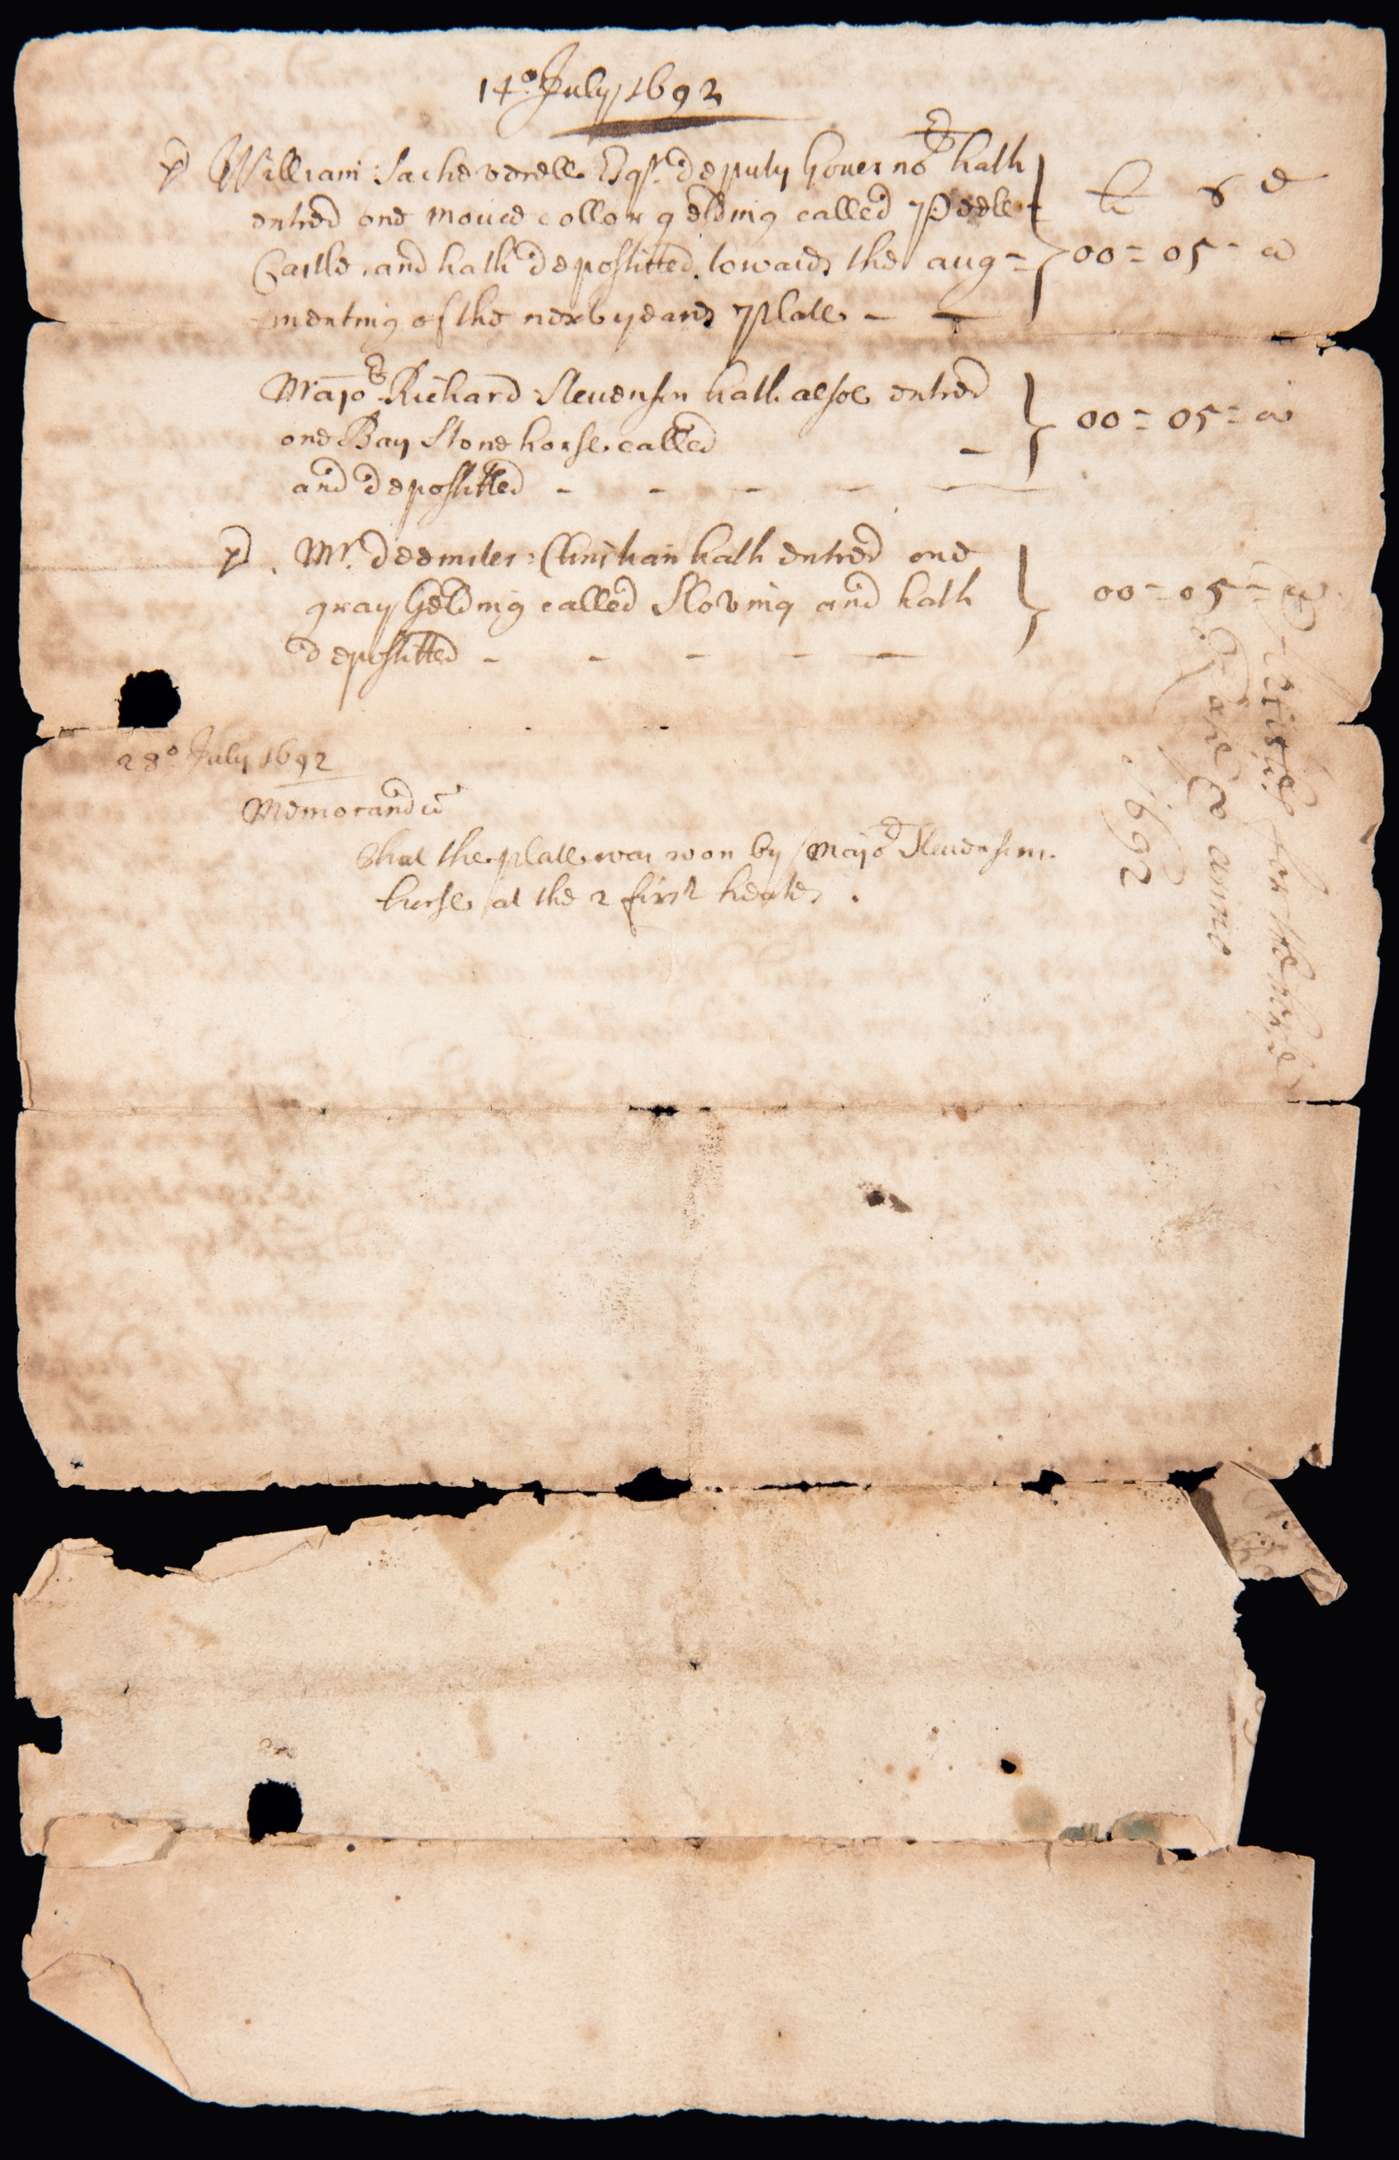 14º July 1692
pd William Sacheverell Esqr. deputy Governor hath
entred one mouce collor gelding called Peele
Castle, and hath depositted towards the aug=
menting of the next yeares plate - -
li s d
00 = 05 = 00
Major Richard Stevenson hath alsoe entred
one Bay Stone horse called -
and depositted - - - - -
00 = 05 = 00
pd. Mr. deemster Christian hath entred one
gray Gelding called Sloving and hath
depositted - - - - -
00 = 05 = 00
28º July 1692
Memorandu
That the plate was won by Major Stevensons
horse at the 2 first heates.
Articles for the
plate anno
1692